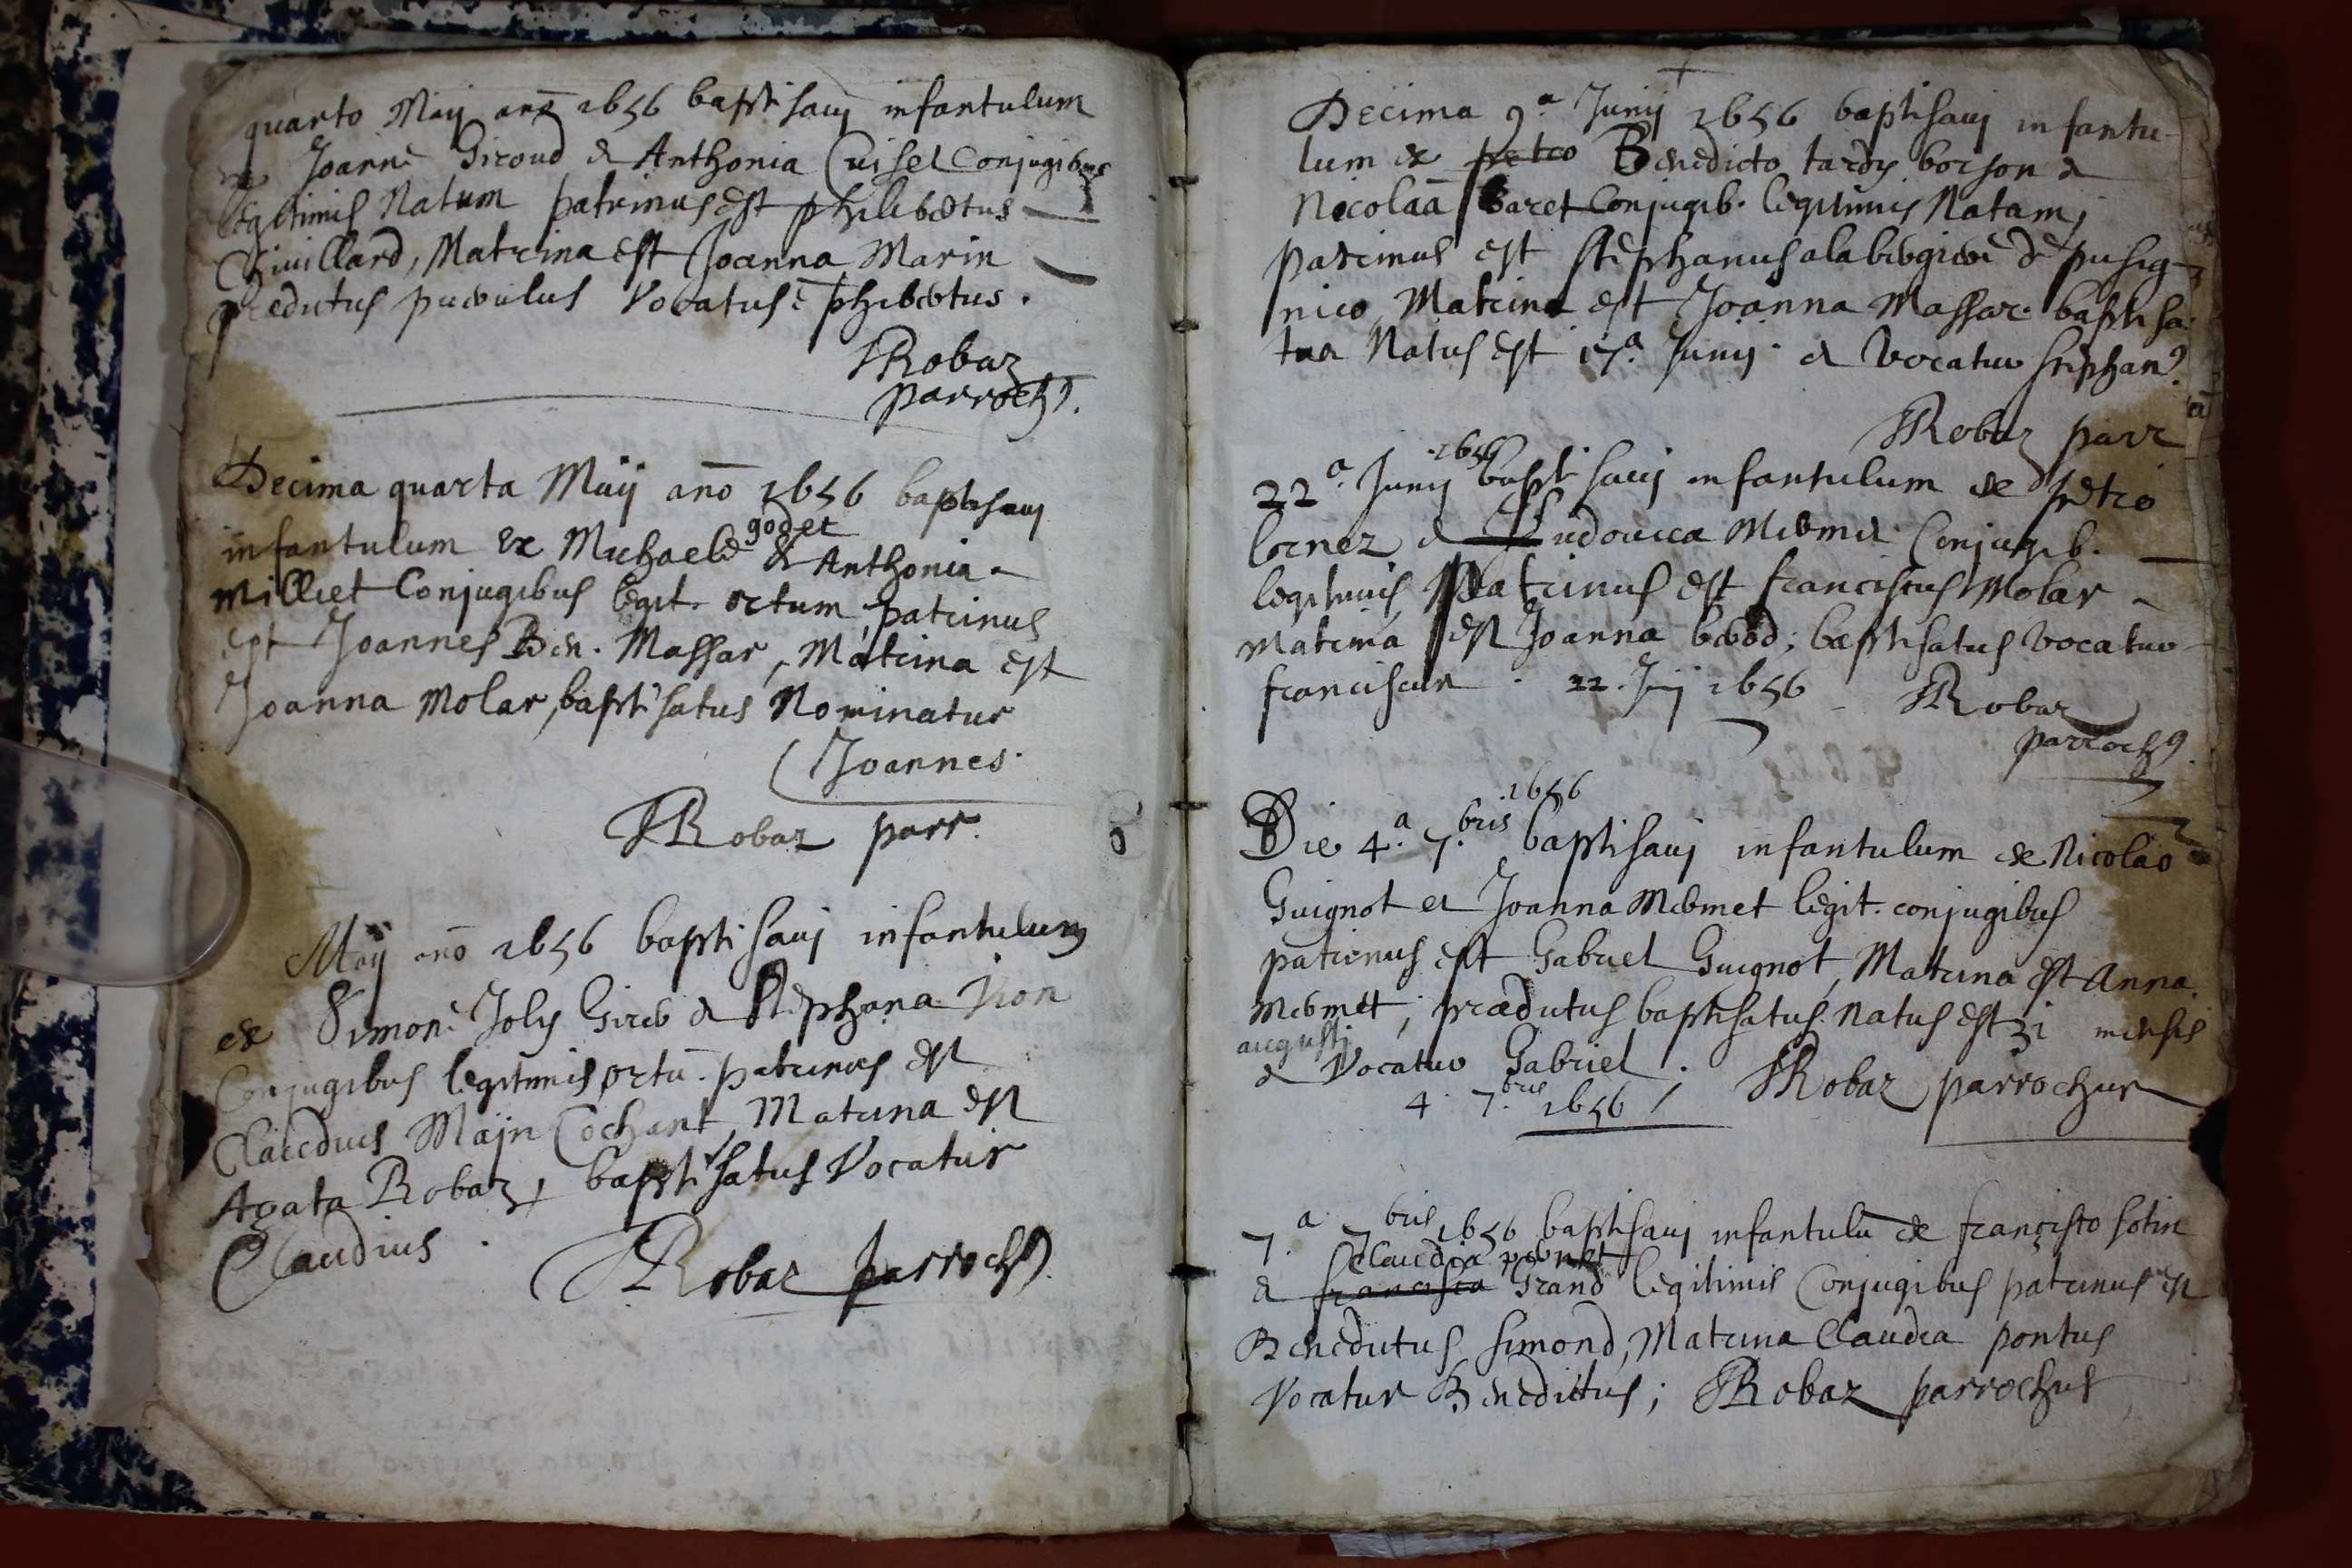 quarto Maij año 1656 baptisavj infantulum
ex Joanne Giroud & Anthonia Cuiset Conjugibus
legitimis Natum patrinus est philibertus
Chivillard, Matrina est Joanna Marin
predictus puerulus Vocatus ē phibertus.
Robaz
parroch9.
Decima quarta Maij año 1656 baptisavj
godet
infantulum ex Michaele & Anthonia
Milliet Conjugibus legit. ortum patrinus
est Joannes Ben. Massar, Matrina est
Joanna Molar, baptisatus Nominatur
Joannes.
Robaz parr.
Maij año 1656 baptisavj infantulum
ex Simone Joly & Stephana Vion
Conjugibus legitimis ortū. patrinus est
Claudius Cochant, Matrina est
Agata Robaz, baptisatus Vocatur
Claudius.
Robaz parroch9.
Decima 9.a Junij 1656 baptisavj infantu-
lum ex petro Benedicto tardy &
Nicolaā baret Conjugib. legitimis Natam,
patrinus est stephanus de pusig-
nieo, Matrina est Joanna Massar. baptisa-
tus Natus est 17.a Junij. & Vocatur stephan9.
Robaz parr
1656
22.a Junij baptisavj infantulum ex petro
cornez & Ludovica Mermet Conjugib.
legitimis, Patrinus est franciscus Molar
Matrina est Joanna; baptisatus vocatur
franciscus. 22. Jnij 1656 Robaz
parroch9.
1656
Die 4.a 7.bris baptisavj infantulum ex Nicolao
Guignot et Joanna Mermet legit. conjugibus
patrinus est Gabriel Guignot, Matrina est Anna
Mermet; prædictus baptisatus Natus est 31 mensis
augusti
& Vocatur Gabriel; Robaz parrochus
4. 7.bris 1656
7.a 7bris 1656 baptisavj infantulū ex francisco sotin
Claudia
& francisca Grand legitimis Conjugibus patrinus est
Benedictus simond, Matrina Claudia pontus
Vocatur Benedictus; Robaz parrochus